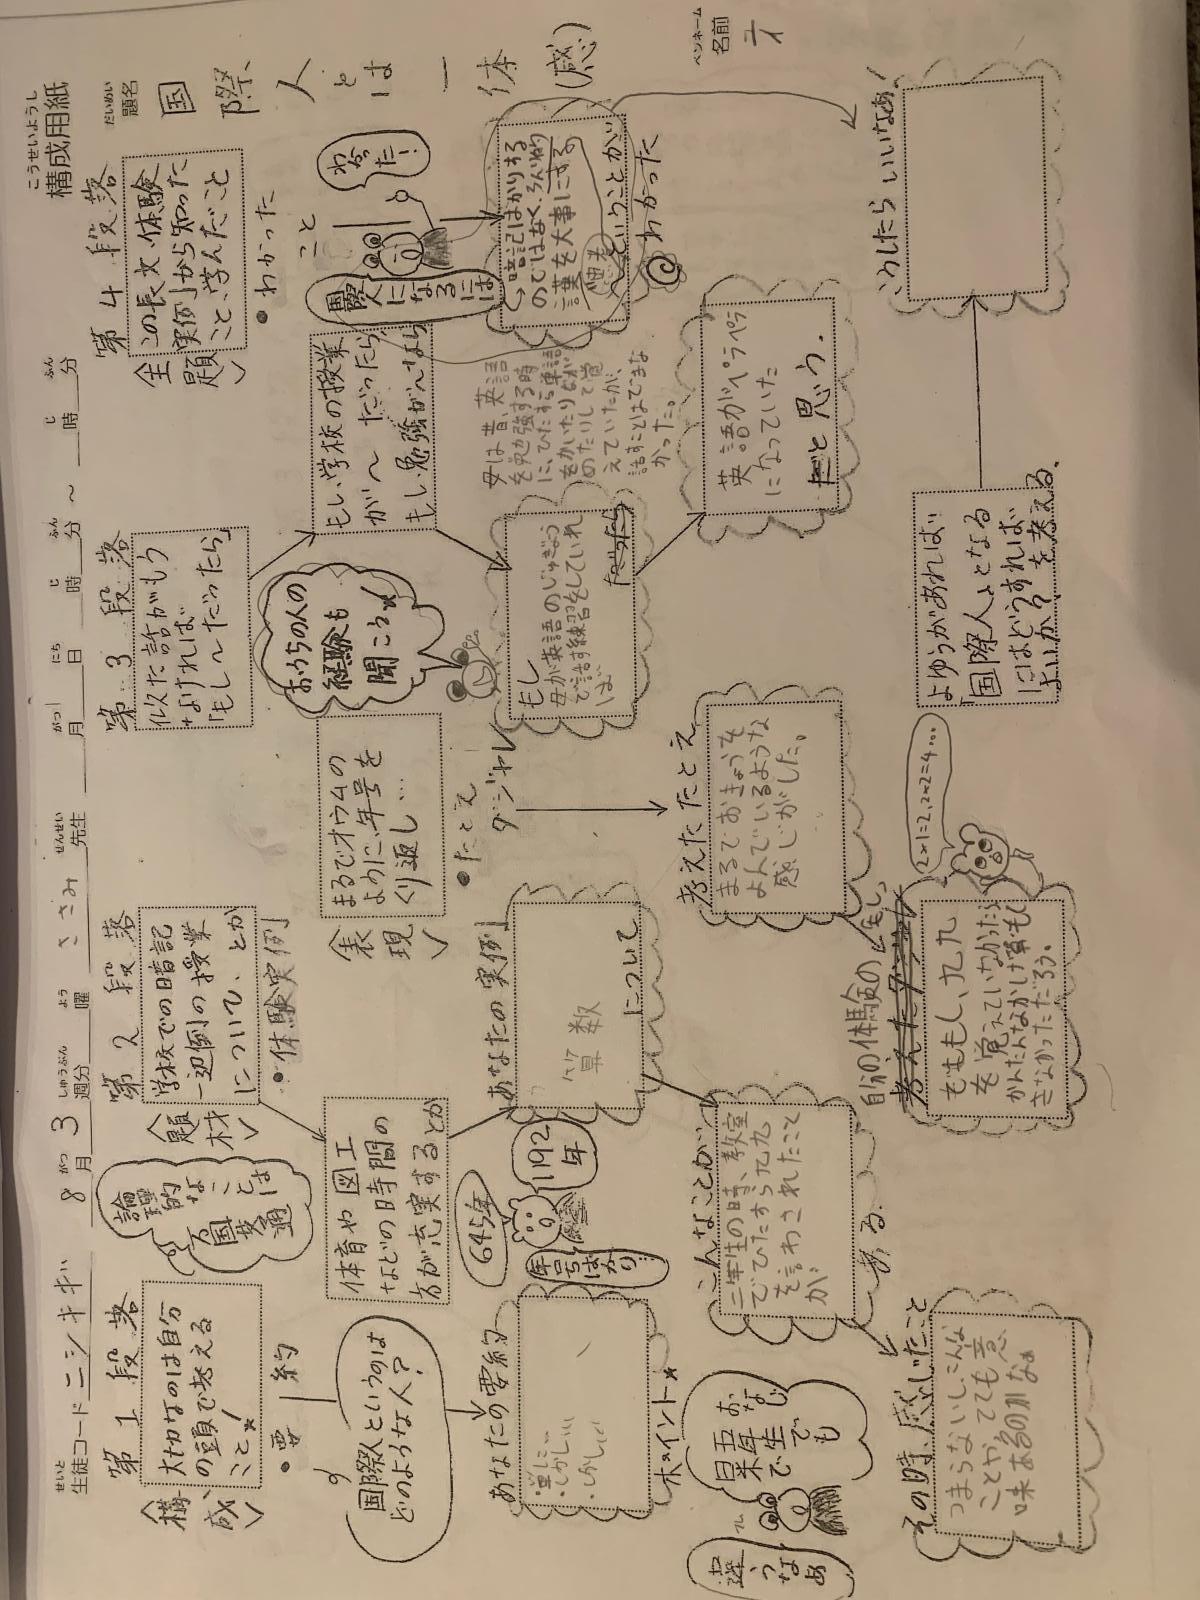 こうせいようし
構成用紙
せいと
生徒コード ニシキギ 8月 3週分 曜 ささみ 先生 月 日 時 分 ～ 時 分
がつ しゅうぶん よう せんせい がつ にち じ ふん じ ふん
だいめい
題名
国際人とは一体(感)
ペンネーム
名前
第1段落
<構成>
大切なのは自分
の頭で考える
こと!
・要約
国際人というのは
どのような人?
あなたの要約
・単に…
・しかし…
・しかし…
ポイント
日米
五年生
おなじ
でも
違うなぁ
論理的
なことは
万国共通
第2段落
<題材>
学校での暗記
一辺倒の授業
について、とか
・体験実例
体育や図工
などの時間の
方が充実するとか
645年
1192年
年号ばかり…
あなたの実例
算数
について
こんなことが
二年生の時、教室
でひたすら九九
を言わされたこと
が
ある。
その時、感じたこと
つまらないし、こんな
ことやってても意
味あるのかなぁ
<表現>
まるでオウムの
ように、年号を
くり返し…
・たとえ
ダジャレ
考えたたとえ
まるでおきょうを
よんでいるような
感じがした。
自分の体験の「もし」
そももし、九九
を覚えていなかったら
かんたんなかけ算もで
きなかっただろう。
2×1=2,2×2=4…
第3段落
似た話がもう
なければ
「もし～だったら」
おうちの人の
経験も
聞こう
もし学校の授業
が～だったら
もし勉強が～なら
もし
母が英語のじゅぎょう
で話す練習をしていれ
ば
だったら
母は昔、英語
を勉強する時
に、ひたすら単語
をかいたりなが
めたりして覚
えていたが、
話すことはできな
かった。
英語がペラペラ
になっていた
だと思う。
第4段落
<主題>
この長文、体験
実例から知った
こと、学んだこと
・わかった
こと
わかった!
国際人になるには
→暗記ばかりする
のではなく、ろんり的
思考
を大事にする
ということが
わかった
よゆうがあれば!!
「国際人」となる
にはどうすれば
よいか?を考える。
こうしたらいいなぁ!